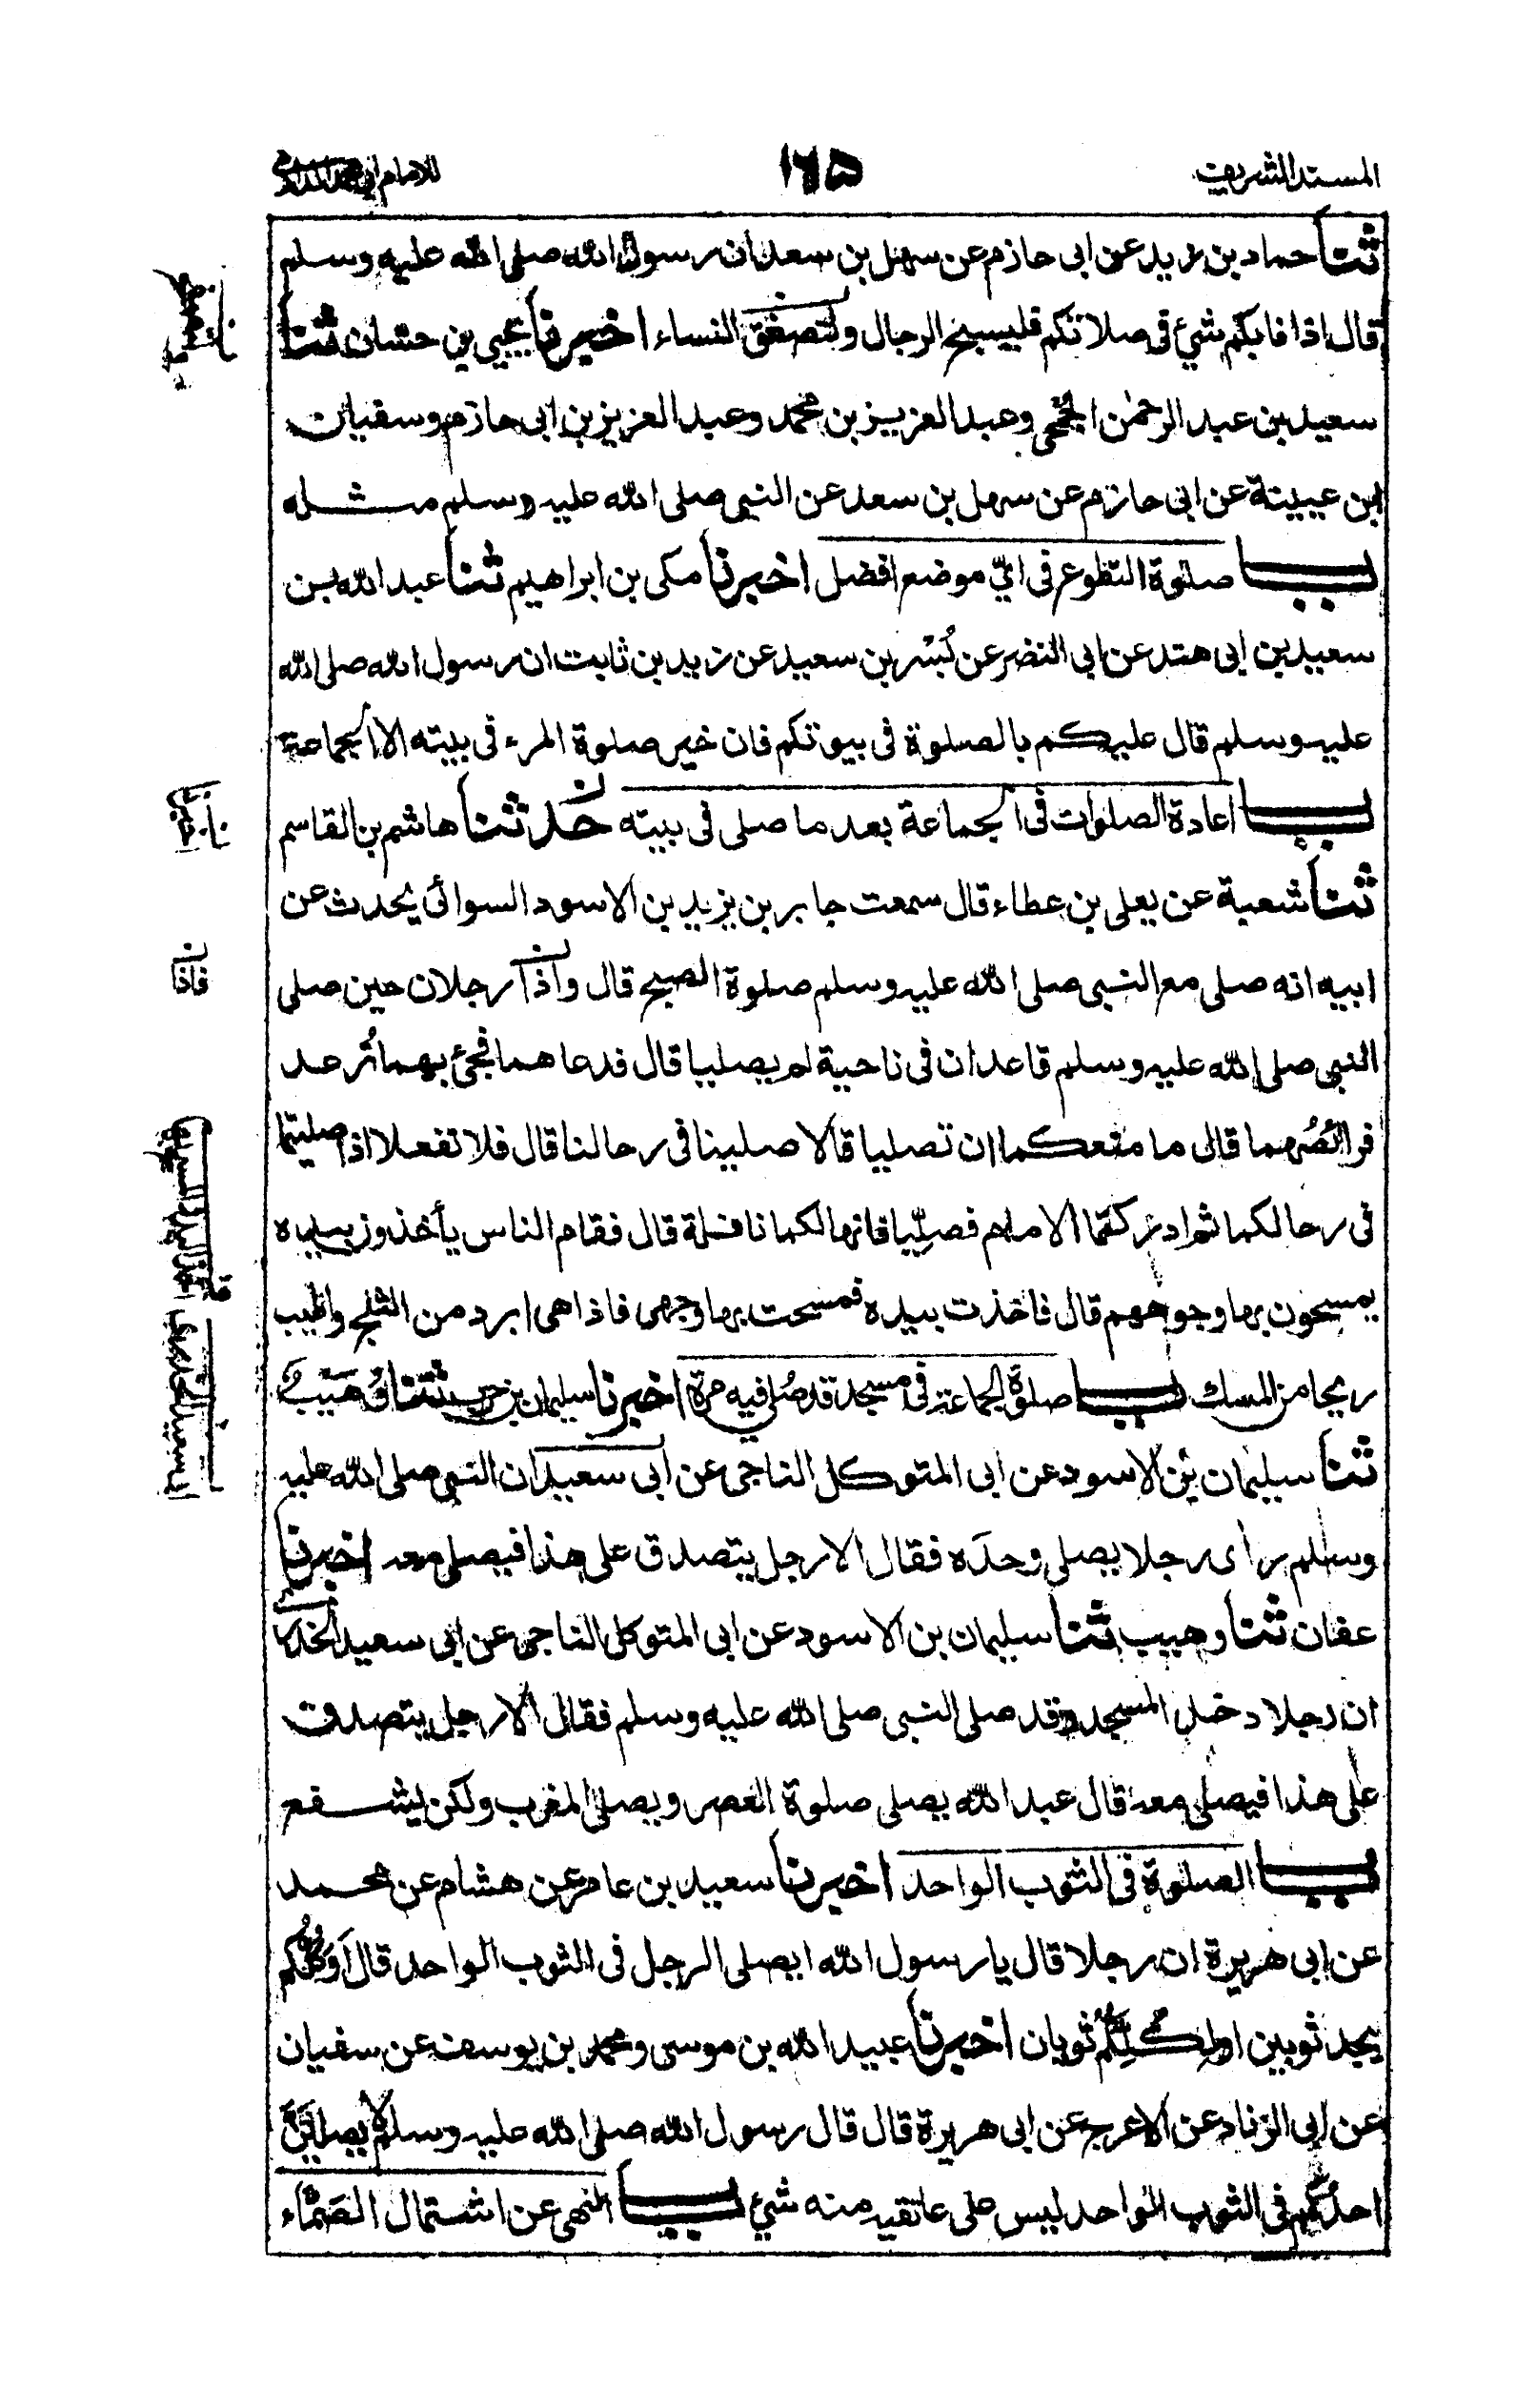 المسند الشريف
١٦٥
للامام ابي محمد الدارمي
ثنا حماد بن زيد عن ابى حازم عن سهل بن سعد ان رسول الله صلى الله عليه وسلم
قال اذا نابكم شئ فى صلاتكم فليسبح الرجال ولتصفق النساء اخبرنا يحيى بن حسان ثنا
سعيد بن عبد الرحمٰن الجمحى وعبد العزيز بن محمد وعبد العزيز بن ابى حازم وسفيان
ابن عيينة عن ابى حازم عن سهل بن سعد عن النبى صلى الله عليه وسلم مثله
باب صلوة التطوع فى اىّ موضع افضل اخبرنا مكى بن ابراهيم ثنا عبد الله بن
سعيد بن ابى هند عن ابى النضر عن بُسْر بن سعيد عن زيد بن ثابت ان رسول الله صلى الله
عليه وسلم قال عليكم بالصلوة فى بيوتكم فان خير صلوة المرء فى بيته الا الجماعة
باب اعادة الصلوات فى الجماعة بعد ما صلى فى بيته حدثنا هاشم بن القاسم
ثنا شعبة عن يعلى بن عطاء قال سمعت جابر بن يزيد بن الاسود السوائى يحدث عن
ابيه انه صلى مع النبى صلى الله عليه وسلم صلوة الصبح قال واذا رجلان حين صلى
النبى صلى الله عليه وسلم قاعدان فى ناحية لم يصليا قال فدعا هما فجئ بهما تُرعد
فرائصُهما قال ما منعكما ان تصليا قالا صلينا فى رحالنا قال فلا تفعلا اذا صليتما
فى رحالكما ثم ادركتما الامام فصلِّيا فانها لكما نافلة قال فقام الناس يأخذون بيده
يمسحون بها وجوههم قال فاخذت بيده فمسحت بها وجهى فاذا هى ابرد من الثلج واطيب
ريحا من المسك باب صلوة الجماعة فى مسجد قد صُلى فيه مرة اخبرنا سليمان بن حرب ثنا وُهَيْب
ثنا سليمان بن الاسود عن ابى المتوكل الناجى عن ابى سعيد ان النبى صلى الله عليه
وسلم رأى رجلا يصلى وحدَه فقال الا رجل يتصدق على هذا فيصلى معه اخبرنا
عفان ثنا وهيب ثنا سليمان بن الاسود عن ابى المتوكل الناجى عن ابى سعيد الخدرى
ان رجلا دخل المسجد وقد صلى النبى صلى الله عليه وسلم فقال الا رجل يتصدق
على هذا فيصلى معه قال عبد الله يصلى صلوة العصر ويصلى المغرب ولكن ليشفع
باب الصلوة فى الثوب الواحد اخبرنا سعيد بن عامر عن هشام عن محمد
عن ابى هريرة ان رجلا قال يا رسول الله ايصلى الرجل فى الثوب الواحد قال اَوَكُلُّكم
يجد ثوبين او لِكُلِّكُم ثوبان اخبرنا عبيد الله بن موسى ومحمد بن يوسف عن سفيان
عن ابى الزناد عن الاعرج عن ابى هريرة قال قال رسول الله صلى الله عليه وسلم لا يصلينَّ
احدكم فى الثوب الواحد ليس على عاتقيه منه شئ باب النهى عن اشتمال الصَمَّاء
فاذا ن